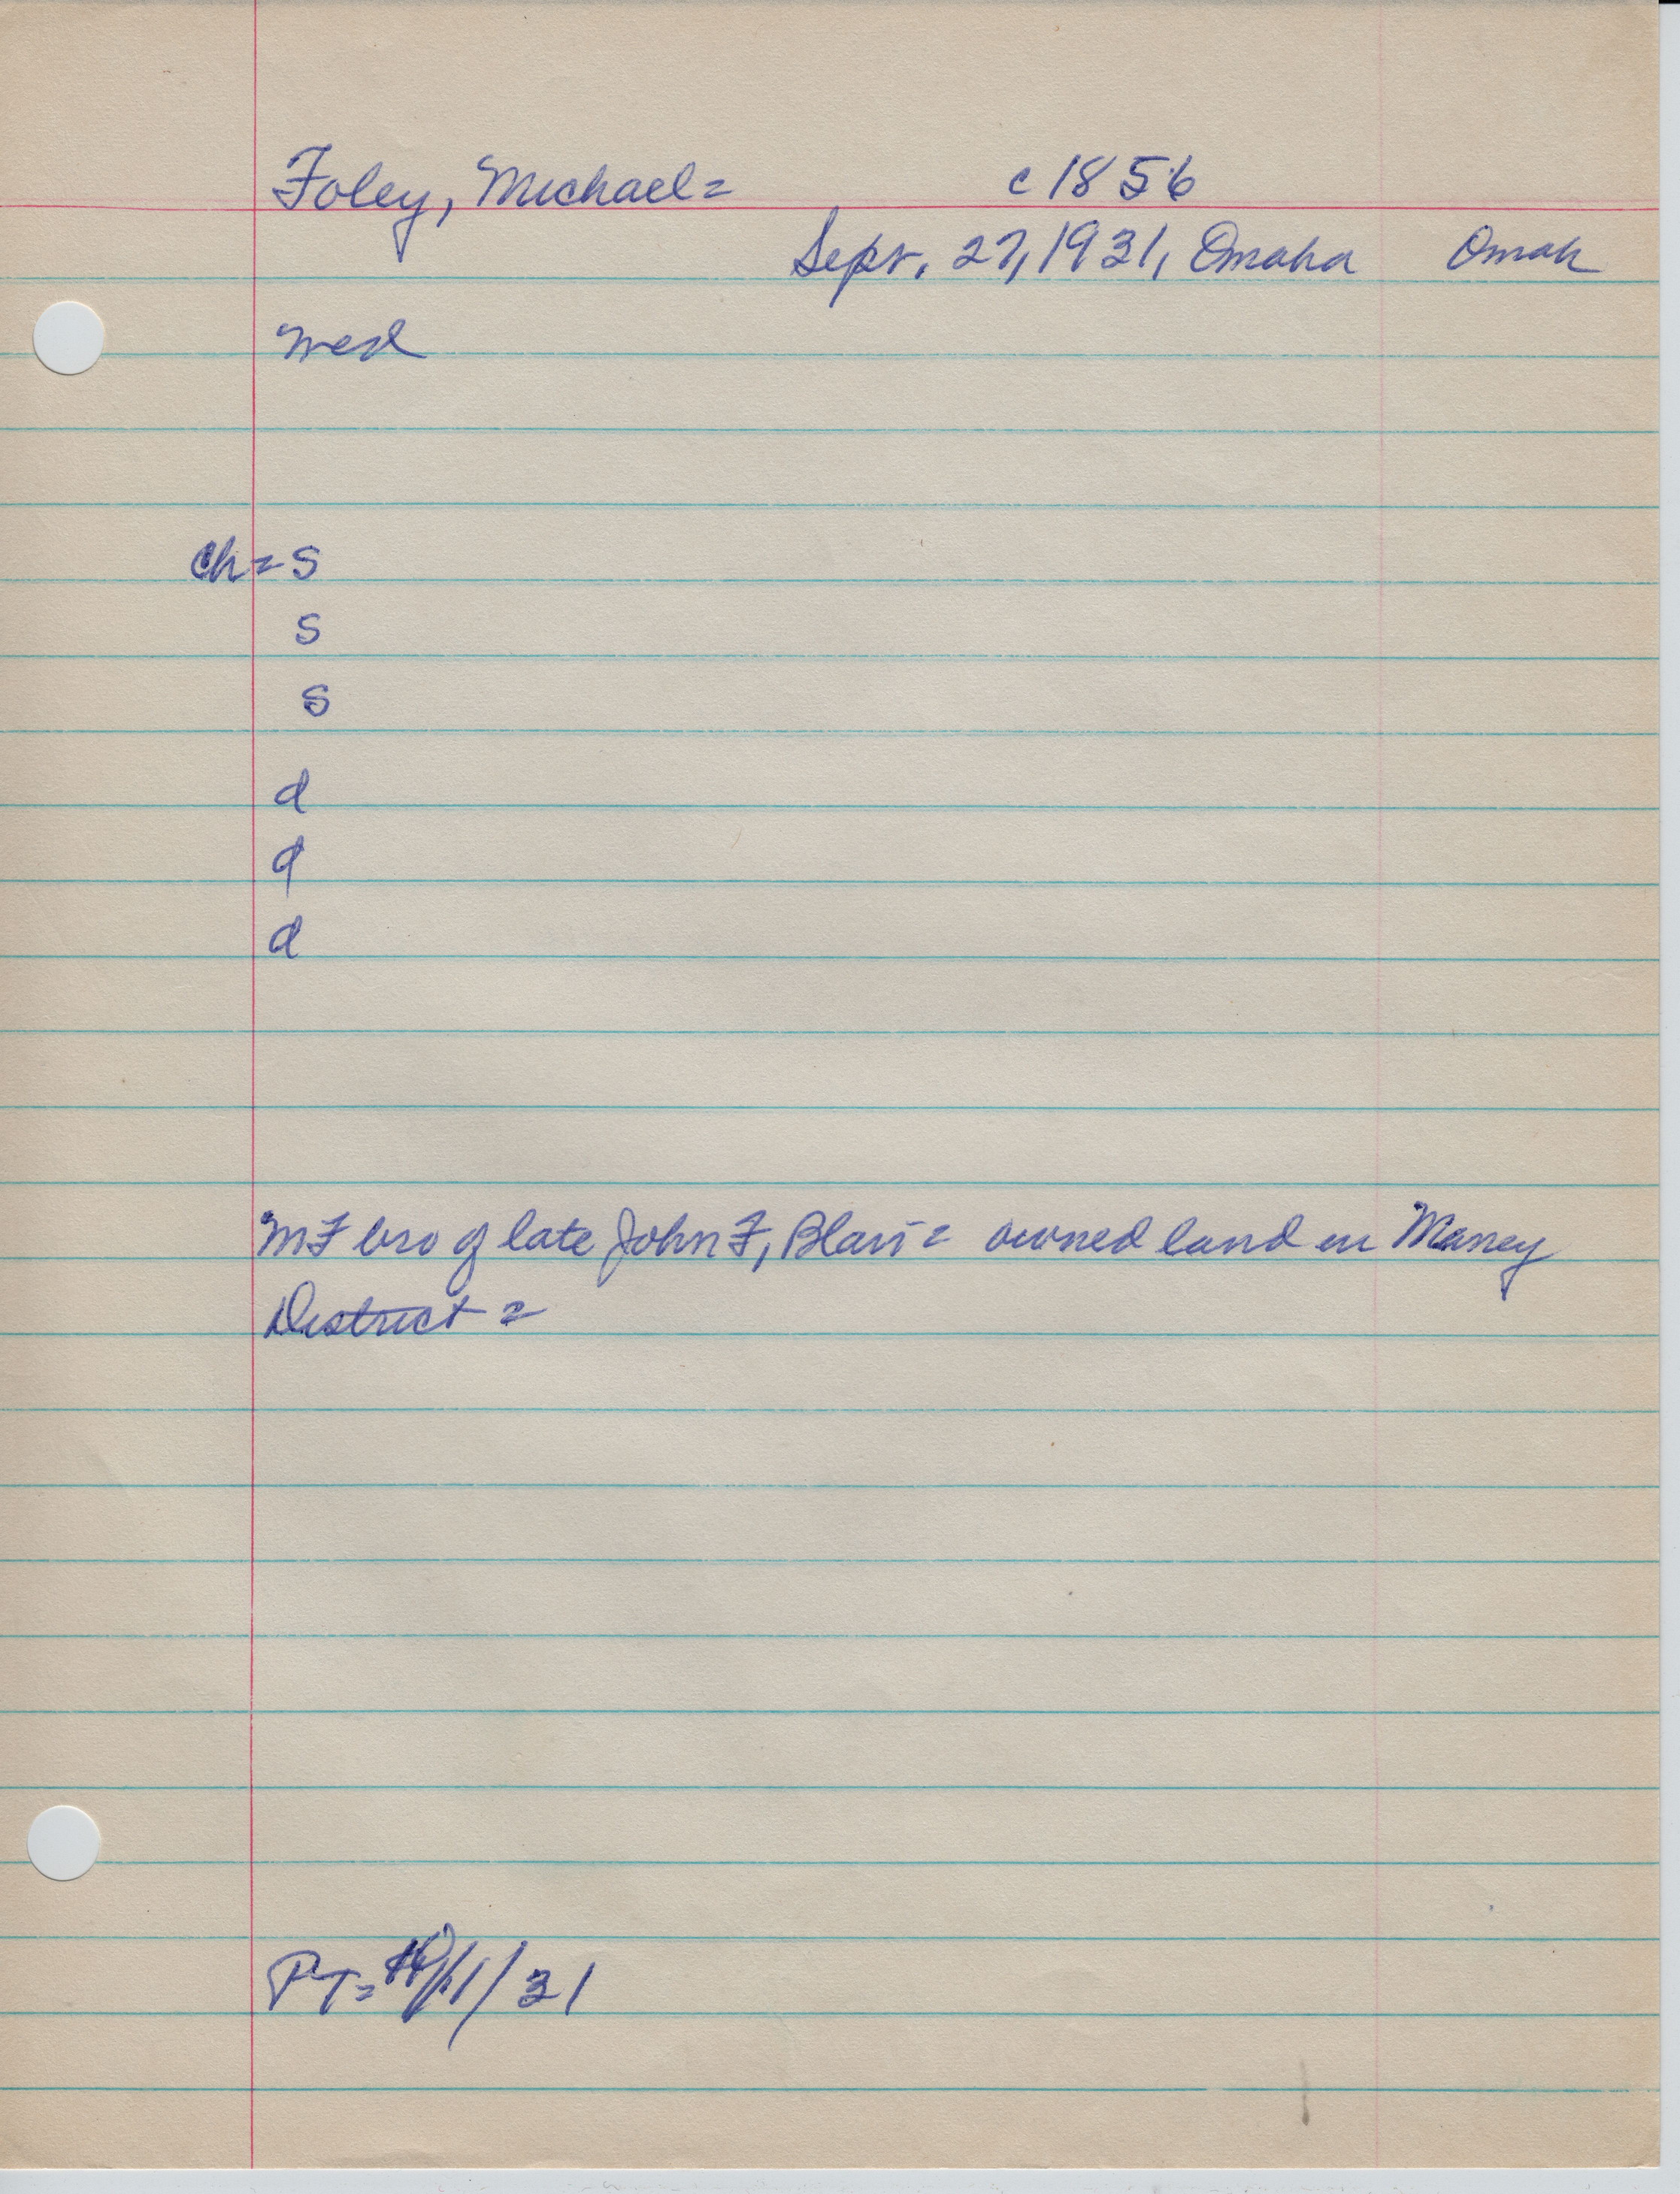 Foley, Michael= c1856
Sept. 27, 1931, Omaha Omah
med
Ch= S
S
S
d
d
d
MF bro of late John F, Blair= owned land in Maney
District =
PT= 10/1/31